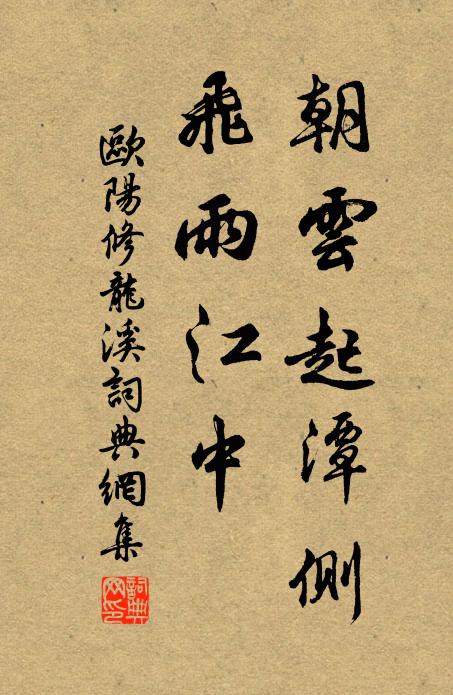 朝雲起潭側
飛雨江中
歐陽修龍溪詞典網集
詞典網印